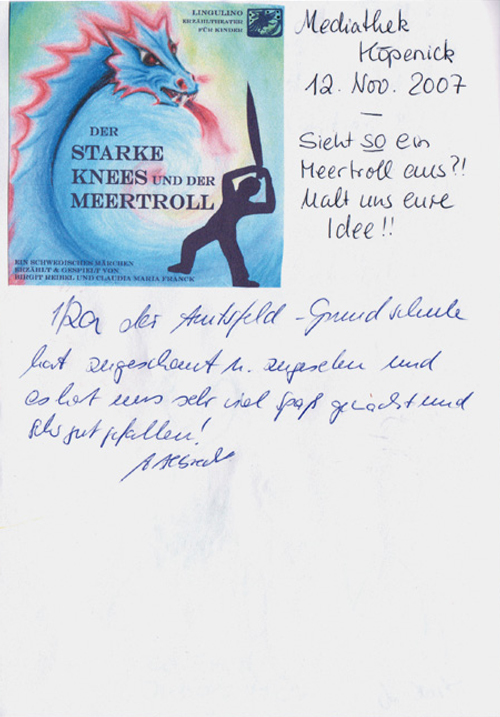 LINGULINO
ERZÄHLTHEATER
FÜR KINDER
DER
STARKE
KNEES UND DER
MEERTROLL
EIN SCHWEDISCHES MÄRCHEN
ERZÄHLT & GESPIELT VON
BIRGIT REIBEL UND CLAUDIA MARIA FRANCK
Mediathek
Köpenick
12. Nov. 2007
—
Sieht so ein
Meertroll aus?!
Malt uns eure
Idee!!
der Amtsfeld-Grundschule
hat angeschaut u. angesehen und
es hat uns sehr viel Spaß gemacht und
sehr gut gefallen!